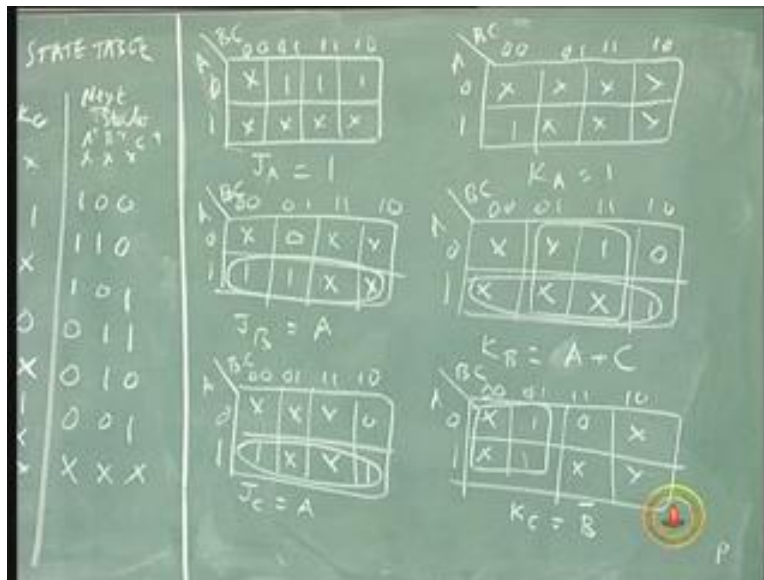 STATE TABLE
KC
Next
State
A⁺ B⁺ C⁺
X X X X
1 1 0 0
X 1 1 0
1 0 1
0 0 1 1
X 0 1 0
1 0 0 1
X
X X X X
BC
A 00 01 11 10
0 X 1 1 1
1 X X X X
J_A = 1
BC
A 00 01 11 10
0 X X X X
1 1 X X X
K_A = 1
BC
A 00 01 11 10
0 X 0 X X
1 1 1 X X
J_B = A
BC
A 00 01 11 10
0 X X 1 0
1 X X X 1
K_B = A + C
BC
A 00 01 11 10
0 X X X 0
1 1 X X 1
J_C = A
BC
A 00 01 11 10
0 X 1 0 X
1 X 1 X X
K_C = B̅
P